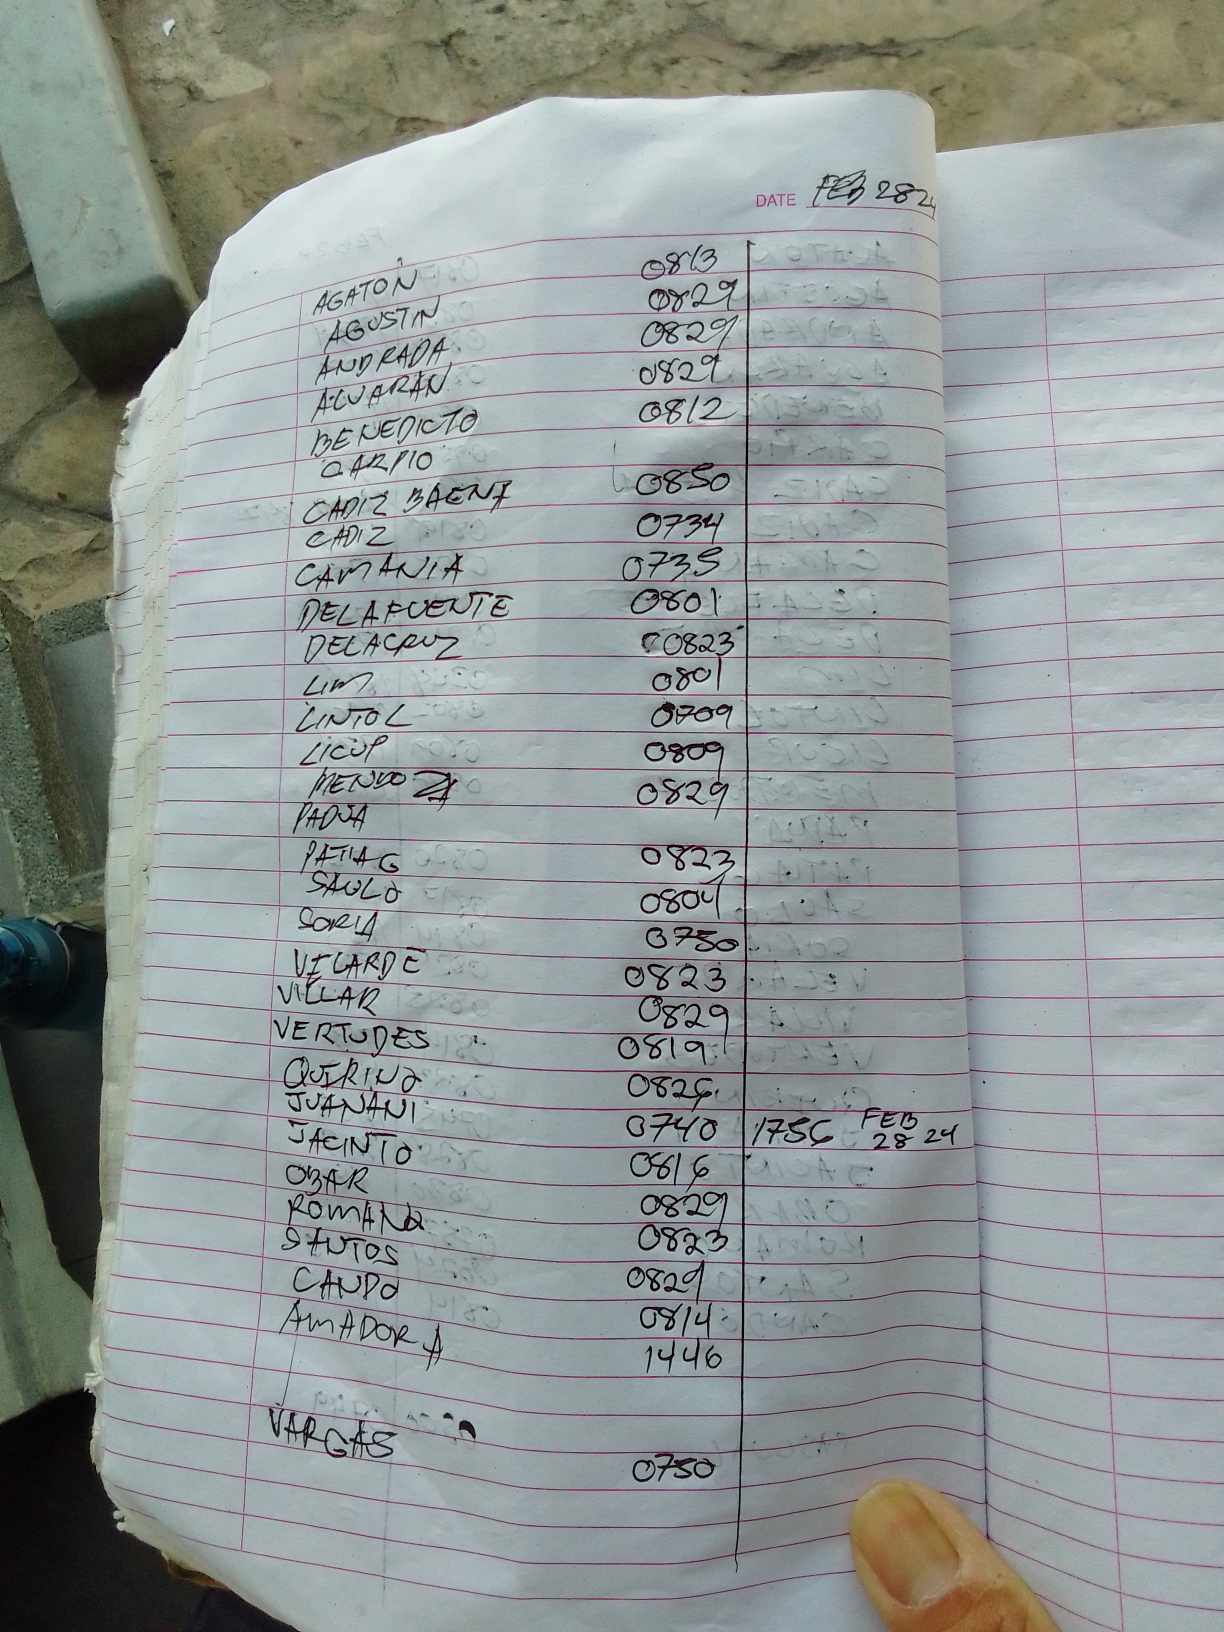 DATE FEB 28 24
AGATON 0813
AGUSTIN 0829
ANDRADA 0829
ALVARAN 0829
BENEDICTO 0812
CARPIO
CADIZ BAENA 0850
CADIZ 0734
CAMANIA 0735
DELAFUENTE 0801
DELACRUZ 0823
LIM 0801
LINTOL 0709
LICUP 0809
MENDOZA 0829
PADUA
PATIAG 0823
SAULO 0804
SORIA 0750
VILARDE 0823
VILLAR 0829
VERTUDES 0819
QUIRINO 0826
JUANANI 0740 1756 FEB 28 24
JACINTO 0816
OBAR 0829
ROMANO 0823
SANTOS 0829
CANDO 0814
AMADORA 1446
VARGAS 0750